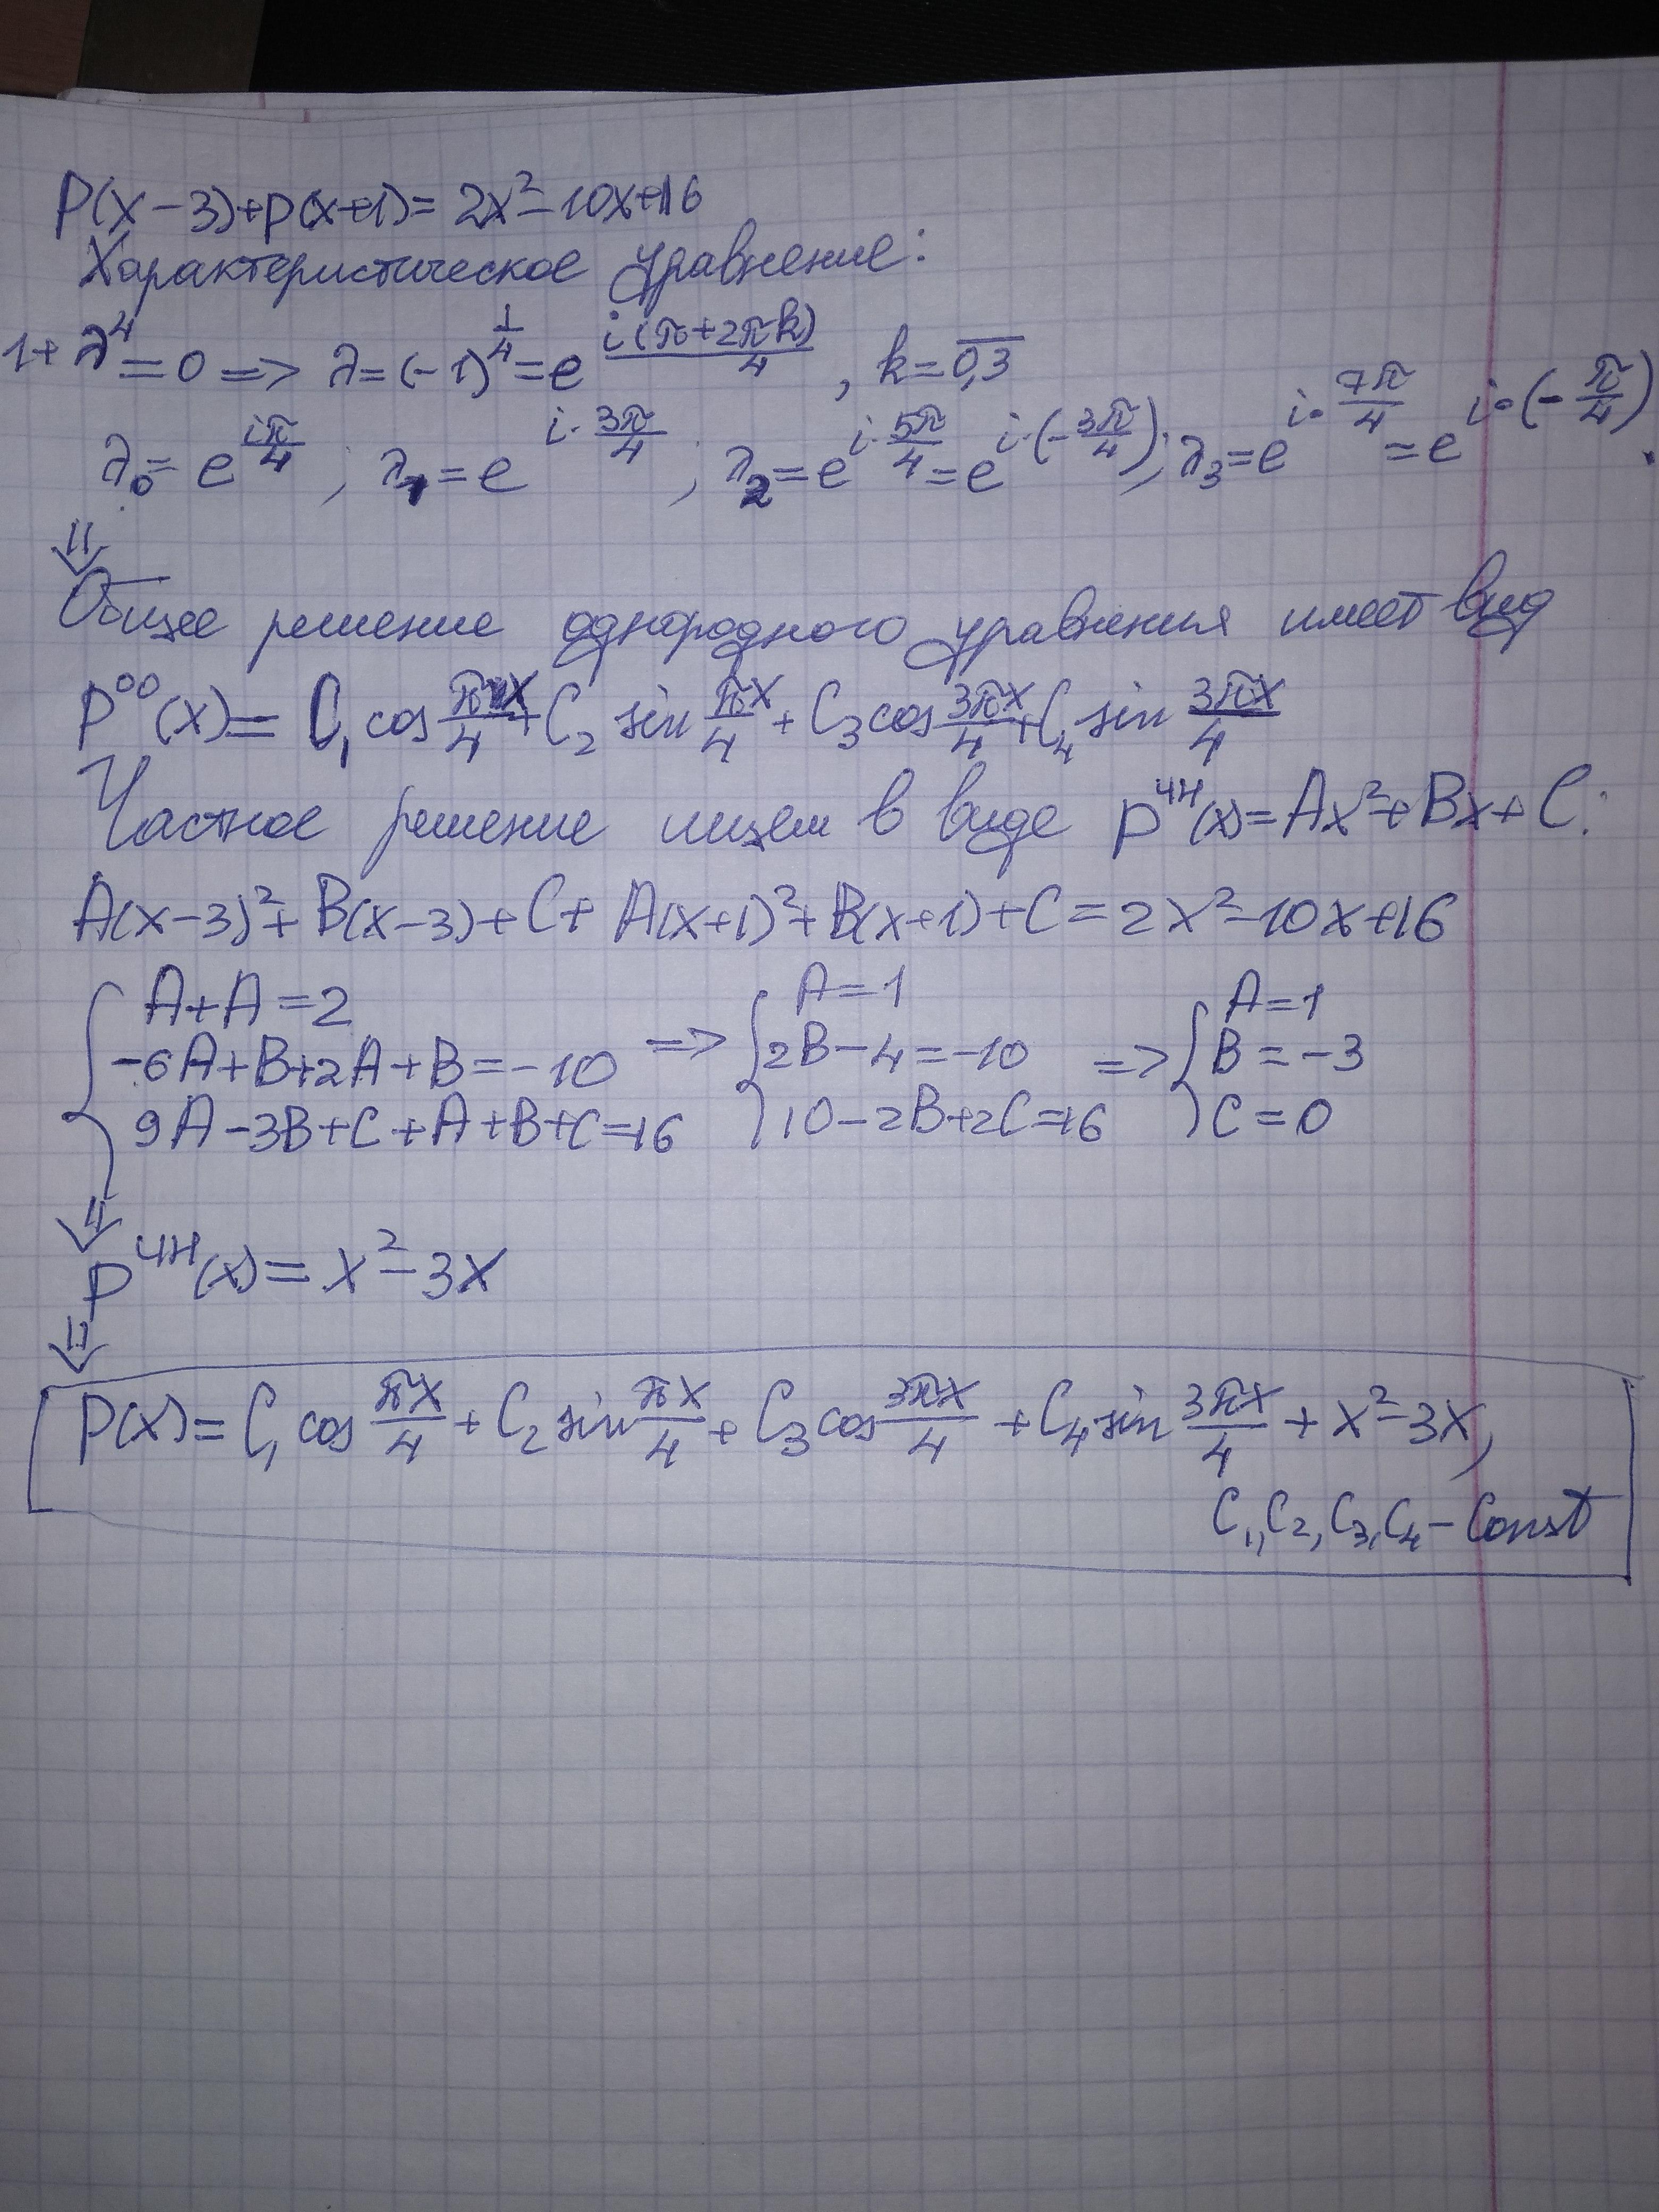 P(x-3)+p(x+1)= 2x²-10x+16
Характеристическое уравнение:
1+λ⁴=0 => λ=(-1)^(1/4)=e^(i(π+2πk)/4), k=0,3
λ₀=e^(iπ/4); λ₁=e^(i·3π/4); λ₂=e^(i·5π/4)=e^(i·(-3π/4)); λ₃=e^(i·7π/4)=e^(i·(-π/4)).
⇓
Общее решение однородного уравнения имеет вид
P^оо(x)= C₁ cos πx/4 + C₂ sin πx/4 + C₃ cos 3πx/4 + C₄ sin 3πx/4
Частное решение ищем в виде p^чн(x)=Ax²+Bx+C:
A(x-3)²+B(x-3)+C+A(x+1)²+B(x+1)+C=2x²-10x+16
{ A+A=2 { A=1 { A=1
-6A+B+2A+B=-10 => 2B-4=-10 => B=-3
9A-3B+C+A+B+C=16 10-2B+2C=16 C=0
⇓
p^чн(x)=x²-3x
⇓
P(x)=C₁ cos πx/4 + C₂ sin πx/4 + C₃ cos 3πx/4 + C₄ sin 3πx/4 + x²-3x,
C₁,C₂,C₃,C₄-Const